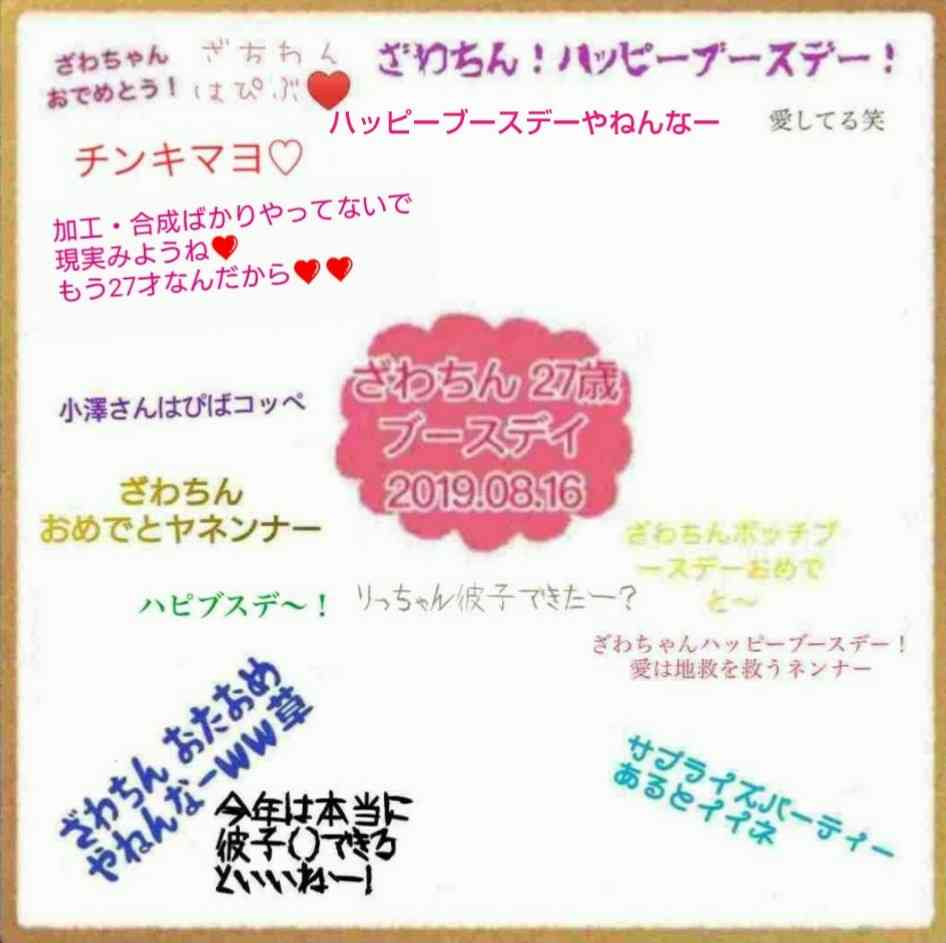 ざわちゃん
おでめとう！
ざちわん
はぴぶ❤
ざわちん！ハッピーブースデー！
ハッピーブースデーやねんなー
愛してる笑
チンキマヨ♡
加工・合成ばかりやってないで
現実みようね❤
もう27才なんだから❤❤
ざわちん 27歳
ブースデイ
2019.08.16
小澤さんはぴばコッペ
ざわちん
おめでとヤネンナー
ざわちんボッチブ
ースデーおめで
と〜
ハピブスデ〜！
りっちゃん彼子できたー？
ざわちゃんハッピーブースデー！
愛は地救を救うネンナー
ざわちん おたおめ
やねんなーWW草
今年は本当に
彼子()できろ
といいねー！
サプライズパーティー
あるとイイネ